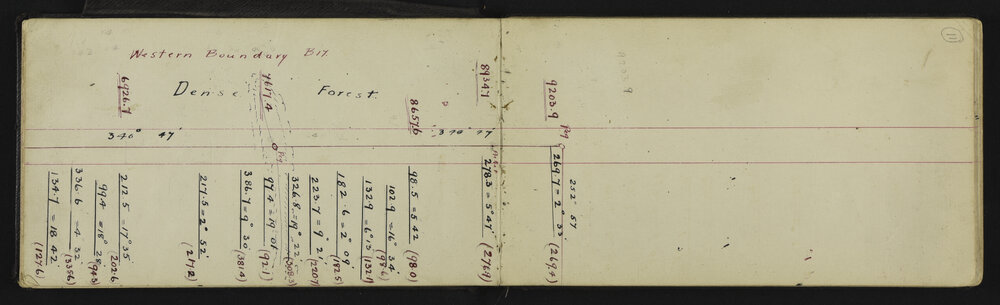 11
Western Boundary B17.
Dense Forest.
6926.7
7617.4
8657.6
8934.7
9203.9
Peg
340° 47'
340° 47'
Peg
252° 57'
134.7 = 18° 42' (127.6)
336.6 = 4° 32' (335.6)
99.4 = 18° 28' (94.3)
212.5 = 17° 35' (202.6)
217.5 = 2° 52' (217.2)
386.7 = 9° 30' (381.4)
97.4 = 19° 01' (92.1)
326.8 = 19° 22' (308.3)
223.7 = 9° 21' (220.7)
182.6 = 2° 09' (182.5)
132.9 = 6° 13' (132.1)
102.9 = 16° 34' (98.6)
98.5 = 5° 42' (98.0)
278.3 = 5° 47' (276.9)
269.7 = 2° 33' (269.4)